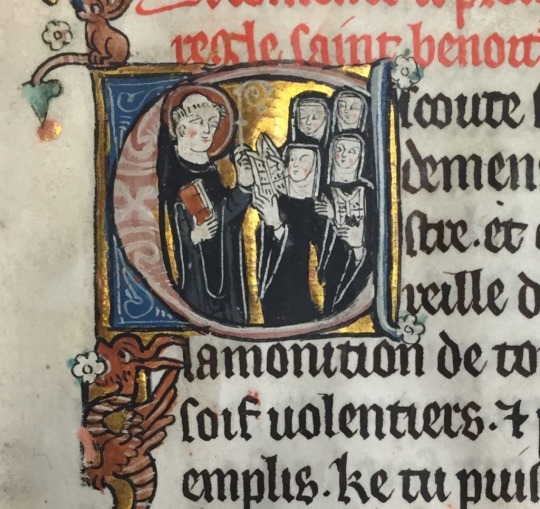 regle saint benoit
Escoute
demen
stre. et
reille d
lamonition de to
soif uolentiers. ⁊
emplis. ke tu puis